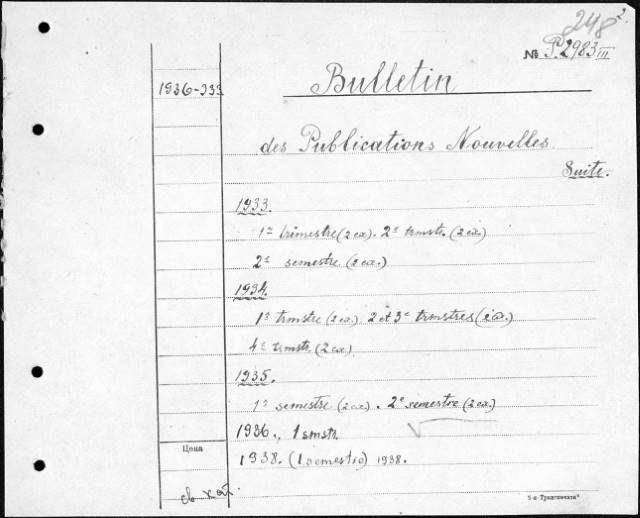 248 2.
№ P.2983 III
1936-333
Bulletin
des Publications Nouvelles.
Suite.
1933.
1er trimestre (2 ex.). 2e trmstr. (2 ex.)
2e semestre (2 ex.)
1934.
1er trmstre (2 ex.) 2 et 3e trmstres (2 ex.)
4e trmstr. (2 ex.)
1935.
1er semestre (2 ex.). 2e semestre (2 ex.)
1936., 1 smstr.
Цена
1938. (1 semestre) 1938.
св кат.